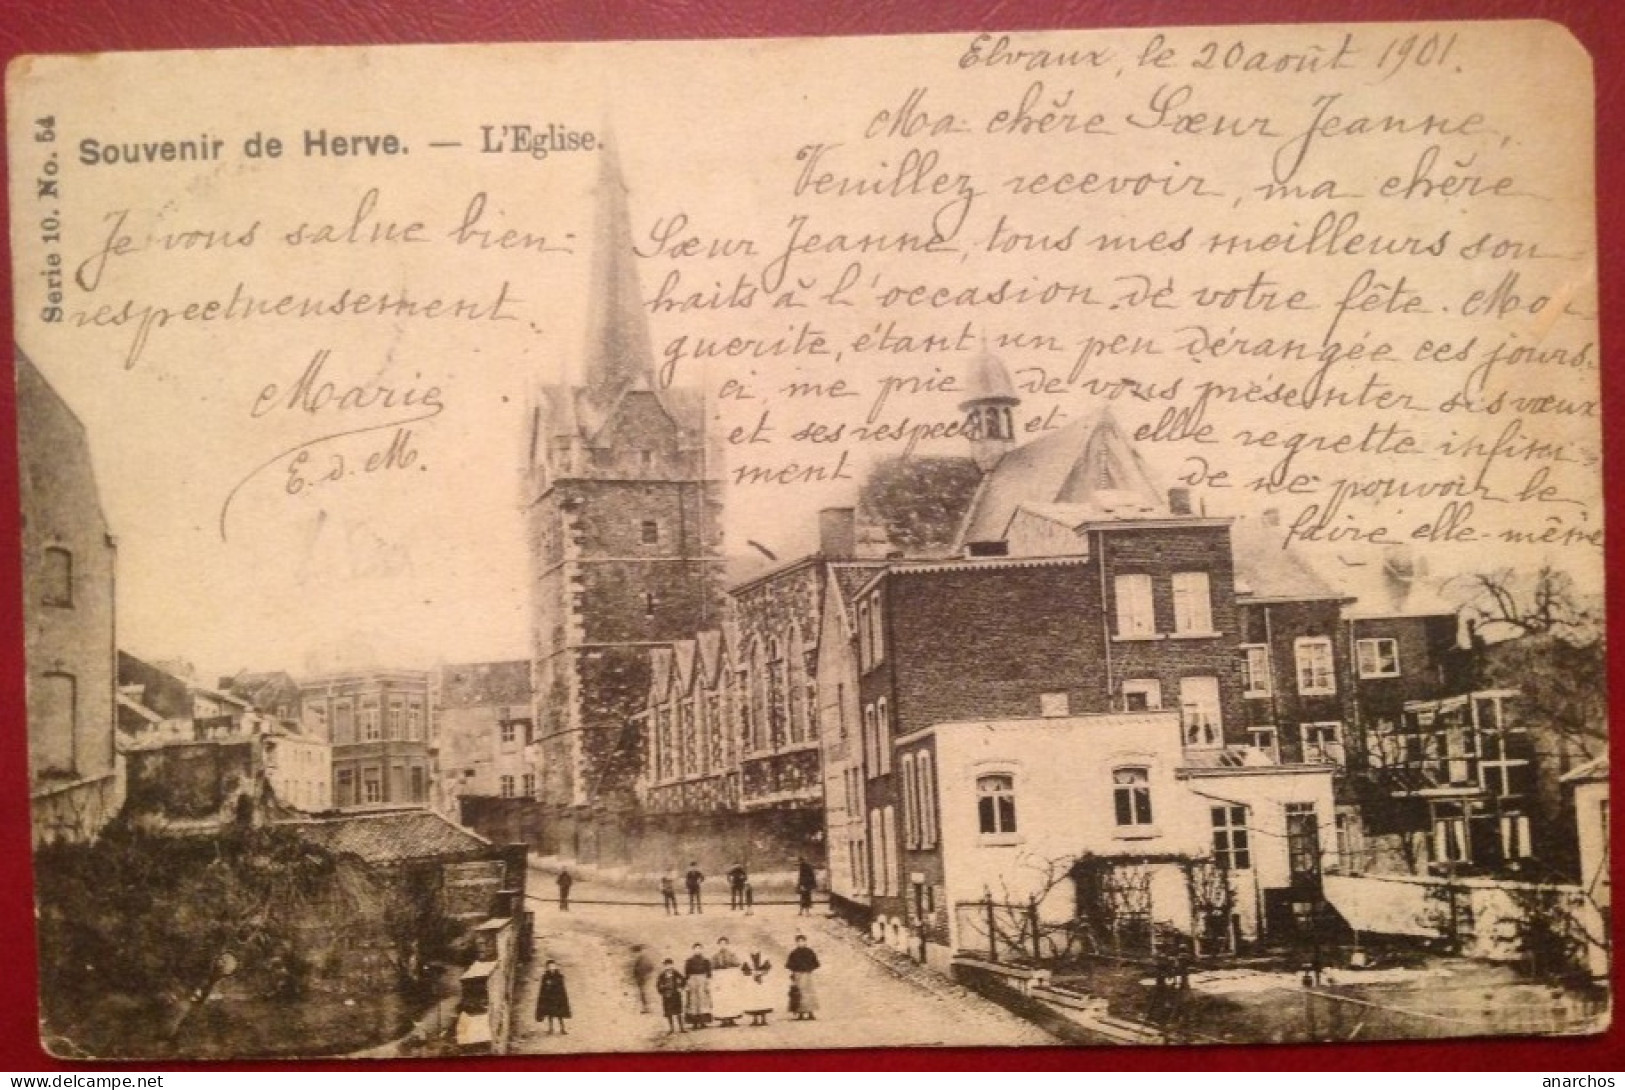 Elvaux, le 20 août 1901.
Ma chère Sœur Jeanne,
Veuillez recevoir, ma chère
Sœur Jeanne, tous mes meilleurs sou-
haits à l'occasion de votre fête. Mar-
guerite, étant un peu dérangée ces jours-
ci, me prie de vous présenter ses vœux
et ses respects et elle regrette infini-
ment de ne pouvoir le
faire elle-même
Souvenir de Herve. — L'Eglise.
Serie 10. No. 54
Je vous salue bien
respectueusement.
Marie
E. d. M.
delcampe.net
anarchos